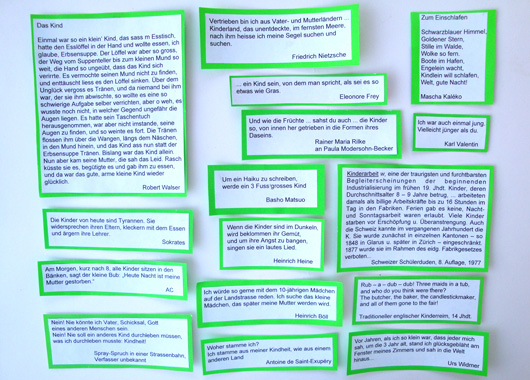 Das Kind
Einmal war so ein klein' Kind, das sass m Esstisch,
hatte den Esslöffel in der Hand und wollte essen, ich
glaube, Erbsensuppe. Der Löffel war aber so gross,
der Weg vom Suppenteller bis zum kleinen Mund so
weit, die Hand so ungeübt, dass das Kind sich
verirrte. Es vermochte seinen Mund nicht zu finden,
und enttäuscht liess es den Löffel sinken. Über dem
Unglück vergoss es Tränen, und da niemand bei ihm
war, der sie ihm abwischte, so wollte es eine so
schwierige Aufgabe selber verrichten, aber o weh, es
wusste noch nicht, in welcher Gegend ungefähr die
Augen liegen. Es hatte sein Taschentuch
herausgenommen, war aber nicht imstande, seine
Augen zu finden, und so weinte es fort. Die Tränen
flossen ihm über die Wangen, längs dem Näschen,
in den Mund hinein, und das Kind ass nun statt der
Erbsensuppe Tränen. Bislang war das Kind allein.
Nun aber kam seine Mutter, die sah das Leid. Rasch
küsste sie es, begütigte es und gab ihm zu essen,
und da war das gute, arme kleine Kind wieder
glücklich.
Robert Walser
Vertrieben bin ich aus Vater- und Mutterländern ...
Kinderland, das unentdeckte, im fernsten Meere,
nach ihm heisse ich meine Segel suchen und
suchen.
Friedrich Nietzsche
Zum Einschlafen
Schwarzblauer Himmel,
Goldener Stern,
Stille im Walde,
Wolke so fern.
Boote im Hafen,
Engelein wacht,
Kindlein will schlafen,
Welt, gute Nacht!
Mascha Kaléko
... ein Kind sein, von dem man spricht, als sei es so
etwas wie Gras.
Eleonore Frey
Und wie die Früchte ... sahst du auch ... die Kinder
so, von innen her getrieben in die Formen ihres
Daseins.
Rainer Maria Rilke
an Paula Modersohn-Becker
Ich war auch einmal jung.
Vielleicht jünger als du.
Karl Valentin
Um ein Haiku zu schreiben,
werde ein 3 Fuss'grosses Kind
Basho Matsuo
Kinderarbeit w, eine der traurigsten und furchtbarsten
Begleiterscheinungen der beginnenden
Industrialisierung im frühen 19. Jhdt. Kinder, deren
Durchschnittsalter 8 – 9 Jahre betrug, ... arbeiteten
damals als billige Arbeitskräfte bis zu 16 Stunden im
Tag in den Fabriken. Ferien gab es keine, Nacht-
und Sonntagsarbeit waren erlaubt. Viele Kinder
starben vor Erschöpfung u. Überanstrengung. Auch
die Schweiz kannte im vergangenen Jahrhundert die
K. Sie wurde zunächst in einzelnen Kantonen – so
1848 in Glarus u. später in Zürich – eingeschränkt.
1877 wurde sie im Rahmen des eidg. Fabrikgesetzes
verboten..
Schweizer Schülerduden, 8. Auflage, 1977
Die Kinder von heute sind Tyrannen. Sie
widersprechen ihren Eltern, kleckern mit dem Essen
und ärgern ihre Lehrer.
Sokrates
Wenn die Kinder sind im Dunkeln,
wird beklommen ihr Gemüt,
und um ihre Angst zu bangen,
singen sie ein lautes Lied
Heinrich Heine
Am Morgen, kurz nach 8, alle Kinder sitzen in den
Bänken, sagt der kleine Bub: „Heute Nacht ist meine
Mutter gestorben."
AC
Ich würde so gerne mit dem 10-jährigen Mädchen
auf der Landstrasse reden. Ich suche das kleine
Mädchen, das später meine Mutter werden wird
Heinrich Böll
Rub – a – dub – dub! Three maids in a tub,
and who do you think were there?
The butcher, the baker, the candlestickmaker,
and all of them gone to the fair!
Traditioneller englischer Kinderreim, 14 Jhdt.
Nein! Nie könnte ich Vater, Schicksal, Gott
eines anderen Menschen sein.
Nein! Nie soll ein anderes Kind durchleben müssen,
was ich durchleben musste: Kindheit!
Spray-Spruch in einer Strassenbahn,
Verfasser unbekannt
Woher stamme ich?
Ich stamme aus meiner Kindheit, wie aus einem
anderen Land
Antoine de Saint-Exupéry
Vor Jahren, als ich so klein war, dass jeder mich
sah, um die 3 Jahre alt, stand ich glücksgebläht am
Fenster meines Zimmers und sah in die Welt
hinaus...
Urs Widmer